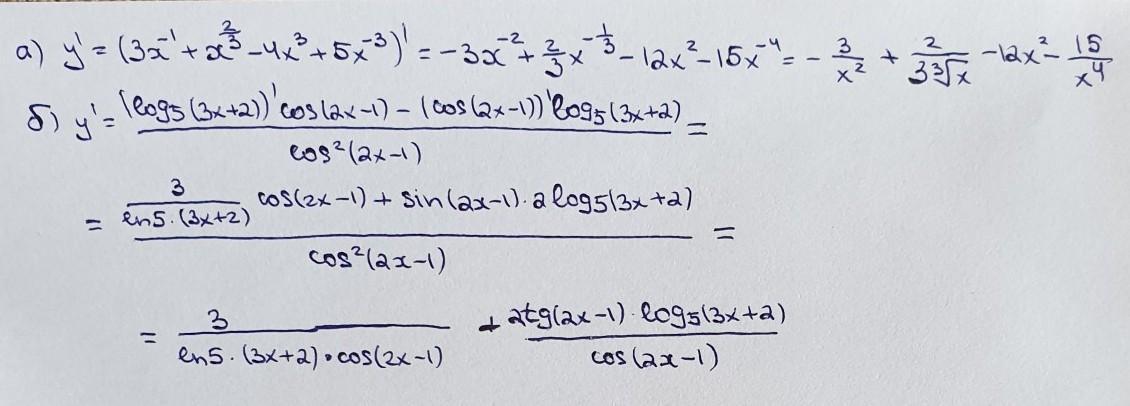 а) y' = (3x⁻¹ + x^(2/3) − 4x³ + 5x⁻³)' = −3x⁻² + 2/3 x^(−1/3) − 12x² − 15x⁻⁴ = − 3/x² + 2/(3∛x) − 12x² − 15/x⁴
б) y' = ((log₅(3x+2))' cos(2x−1) − (cos(2x−1))' log₅(3x+2)) / cos²(2x−1) =
= (3/(ln5·(3x+2)) cos(2x−1) + sin(2x−1)·2log₅(3x+2)) / cos²(2x−1) =
= 3/(ln5·(3x+2)·cos(2x−1)) + 2tg(2x−1)·log₅(3x+2)/cos(2x−1)